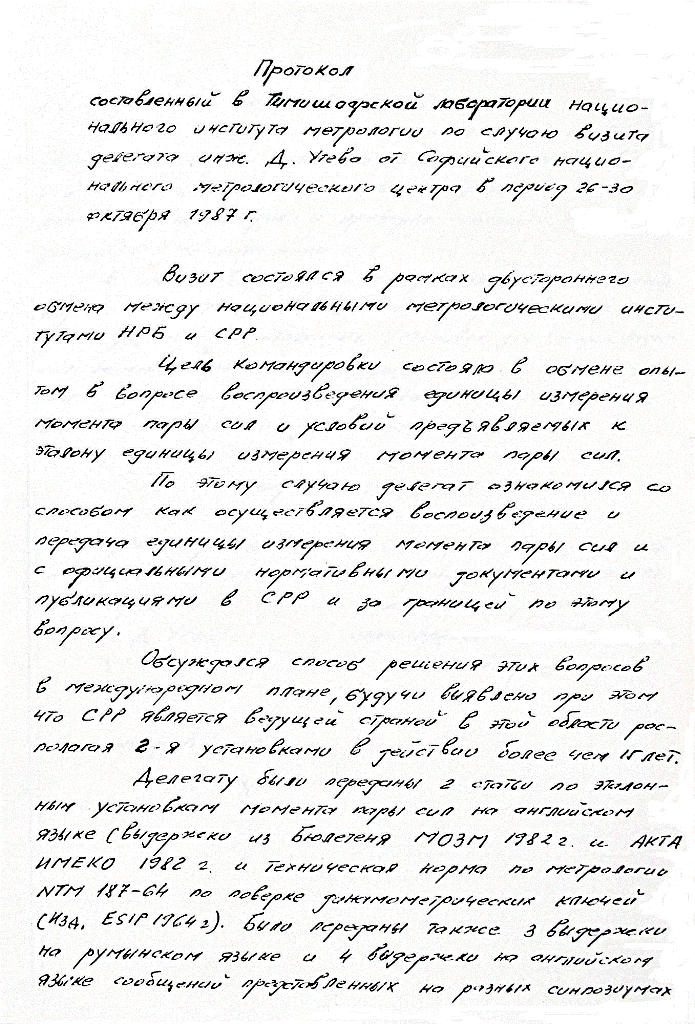 Протокол
составленный в Тимишоарской лаборатории нацио-
нального института метрологии по случаю визита
делегата инж. Д. Утева от Софийского нацио-
нального метрологического центра в период 26-30
октября 1987 г.
Визит состоялся в рамках двустороннего
обмена между национальными метрологическими инсти-
тутами НРБ и СРР.
Цель командировки состояла в обмене опы-
том в вопросе воспроизведения единицы измерения
момента пары сил и условий предъявляемых к
эталону единицы измерения момента пары сил.
По этому случаю делегат ознакомился со
способом как осуществляется воспоизведение и
передача единицы измерения момента пары сил и
с официальными нормативными документами и
публикациями в СРР и за границей по этому
вопросу.
Обсуждался способ решения этих вопросов
в международном плане, будучи выявлено при этом
что СРР является ведущей страной в этой области рас-
полагая 2-я установками в действии более чем 15 лет.
Делегату были переданы 2 статьи по эталон-
ным установкам момента пары сил на английском
языке (выдержки из Бюлетеня МОЗМ 1982 г. и АКТА
ИМЕКО 1982 г. и техническая норма по метрологии
NTM 187-64 по поверке динамометрических ключей
(Изд. ESIP 1964 г). Были переданы также 3 выдержки
на румынском языке и 4 выдержки на английском
языке сообщений представленных на разных симпозиумах